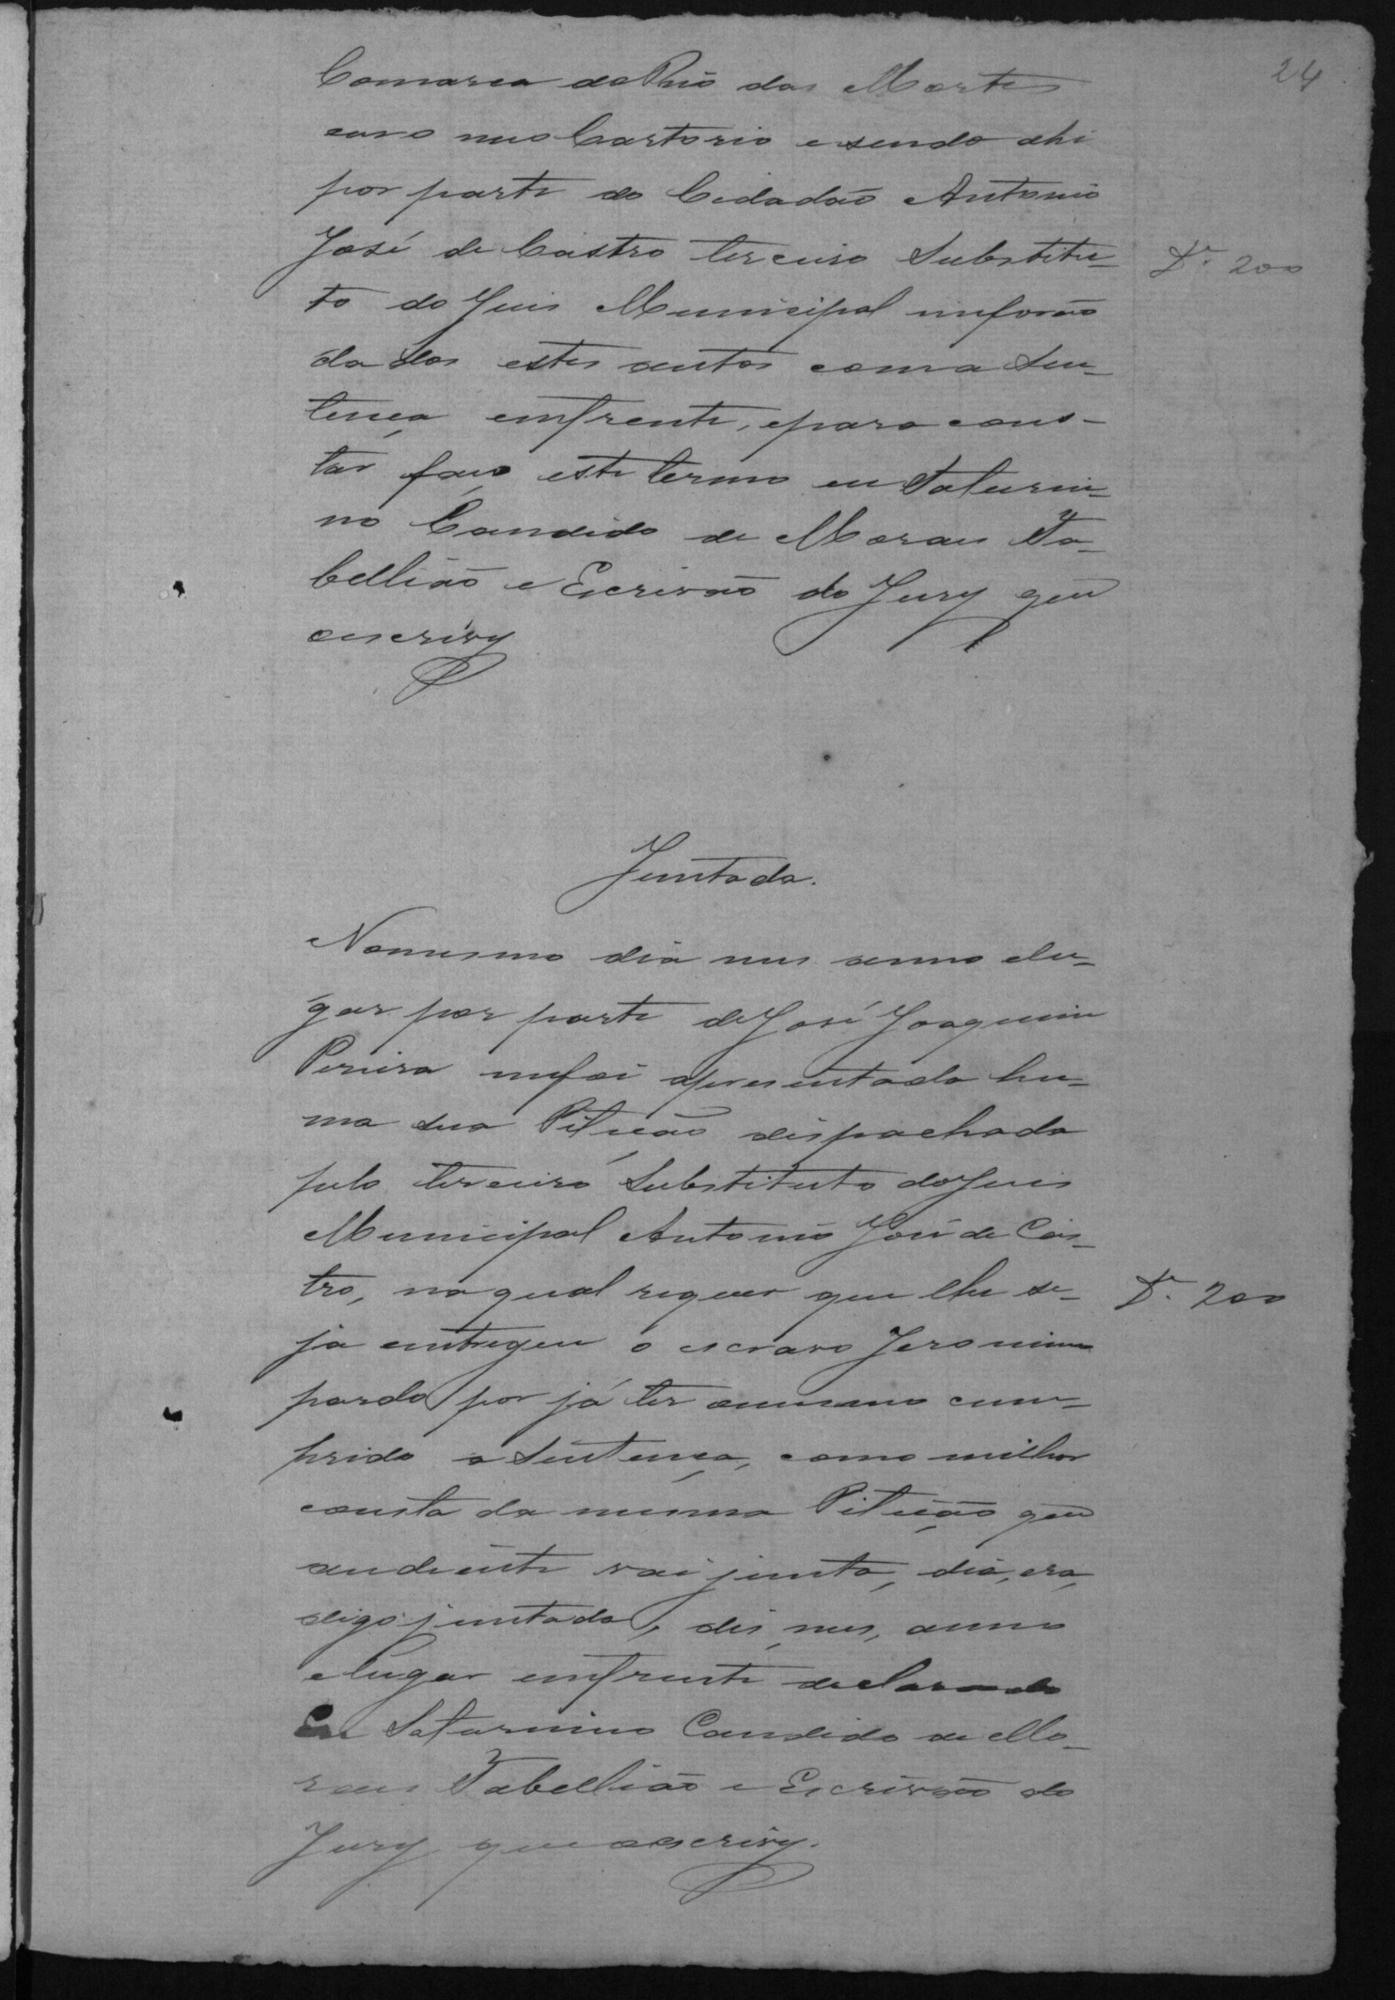 24
Comarca do Rio das Mortes
em o meu Cartorio e sendo ahi
por parte do Cidadão Antonio
José de Castro terceiro Substitu-
Dr. 200
to do Juis Municipal me forão
dados estes autos com a Sen-
tença em frente, e para cons-
tar faço este termo eu Saturni-
no Candido de Moraes Ta-
bellião e Escrivão do Jury que
o escrivy
Juntada.
No mesmo dia mes anno e lu-
gar por parte de José Joaquim
Pereira me foi apresentada hu-
ma sua Petição despachada
pelo terceiro Substituto do Juis
Municipal Antonio José de Cas-
tro, na qual requer que lhe se-
Dr. 200
ja entregue o escravo Jeronimo
pardo por já ter o mesmo cum-
prido a Sentença, como milhor
consta da mesma Petição que
ao diente vai junta, dia, era,
digo juntada, dis, mes, anno
e lugar em frente declarado
Eu Saturnino Candido de Mo-
raes Tabellião e Escrivão do
Jury que o escrivy.